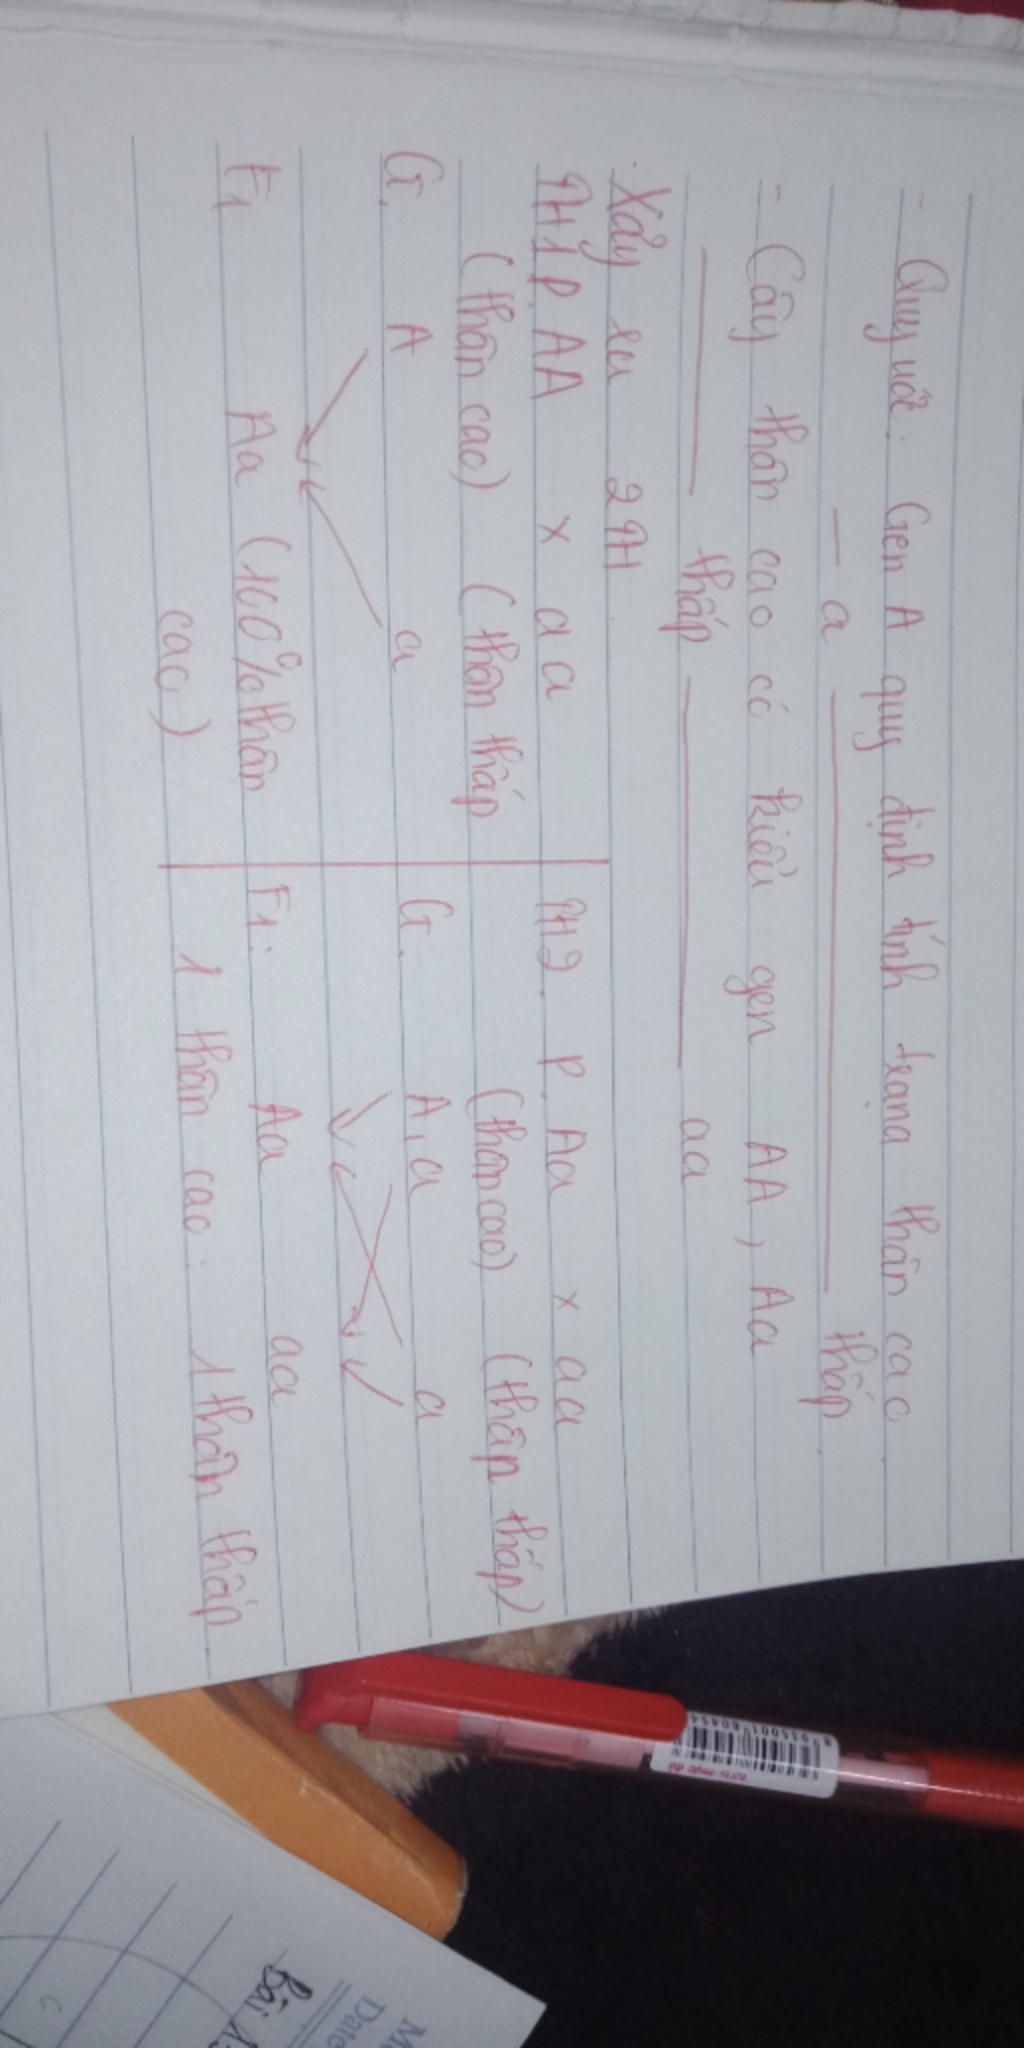 - Quy ước: Gen A quy định tính trạng thân cao
— a ——— thấp.
- Cây thân cao có kiểu gen AA, Aa
——— thấp ——— aa
Xảy ra 2TH
TH1 P. AA x aa
(thân cao) (thân thấp
G. A a
F1 Aa (100% thân
cao)
TH2. P. Aa x aa
(thân cao) (thân thấp)
G. A, a a
F1: Aa aa
1 thân cao : 1 thân thấp.
Date